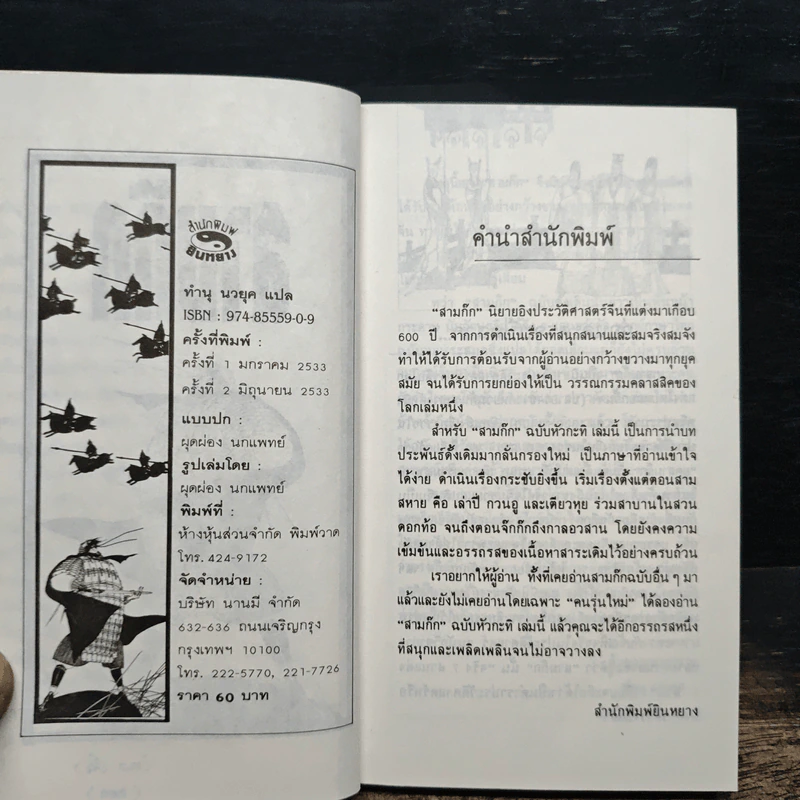 สำนักพิมพ์
ยินหยาง
ทำนุ นวยุค แปล
ISBN : 974-85559-0-9
ครั้งที่พิมพ์ :
ครั้งที่ 1 มกราคม 2533
ครั้งที่ 2 มิถุนายน 2533
แบบปก :
ผุดผ่อง นกแพทย์
รูปเล่มโดย :
ผุดผ่อง นกแพทย์
พิมพ์ที่ :
ห้างหุ้นส่วนจำกัด พิมพ์วาด
โทร. 424-9172
จัดจำหน่าย :
บริษัท นานมี จำกัด
632-636 ถนนเจริญกรุง
กรุงเทพฯ 10100
โทร. 222-5770, 221-7726
ราคา 60 บาท
คำนำสำนักพิมพ์
“สามก๊ก” นิยายอิงประวัติศาสตร์จีนที่แต่งมาเกือบ
600 ปี จากการดำเนินเรื่องที่สนุกสนานและสมจริงสมจัง
ทำให้ได้รับการต้อนรับจากผู้อ่านอย่างกว้างขวางมาทุกยุค
สมัย จนได้รับการยกย่องให้เป็น วรรณกรรมคลาสสิคของ
โลกเล่มหนึ่ง
สำหรับ “สามก๊ก” ฉบับหัวกะทิ เล่มนี้ เป็นการนำบท
ประพันธ์ดั้งเดิมมากลั่นกรองใหม่ เป็นภาษาที่อ่านเข้าใจ
ได้ง่าย ดำเนินเรื่องกระชับยิ่งขึ้น เริ่มเรื่องตั้งแต่ตอนสาม
สหาย คือ เล่าปี่ กวนอู และเตียวหุย ร่วมสาบานในสวน
ดอกท้อ จนถึงตอนจ๊กก๊กถึงกาลอวสาน โดยยังคงความ
เข้มข้นและอรรถรสของเนื้อหาสาระเดิมไว้อย่างครบถ้วน
เราอยากให้ผู้อ่าน ทั้งที่เคยอ่านสามก๊กฉบับอื่น ๆ มา
แล้วและยังไม่เคยอ่านโดยเฉพาะ “คนรุ่นใหม่” ได้ลองอ่าน
“สามก๊ก” ฉบับหัวกะทิ เล่มนี้ แล้วคุณจะได้อีกอรรถรสหนึ่ง
ที่สนุกและเพลิดเพลินจนไม่อาจวางลง
สำนักพิมพ์ยินหยาง